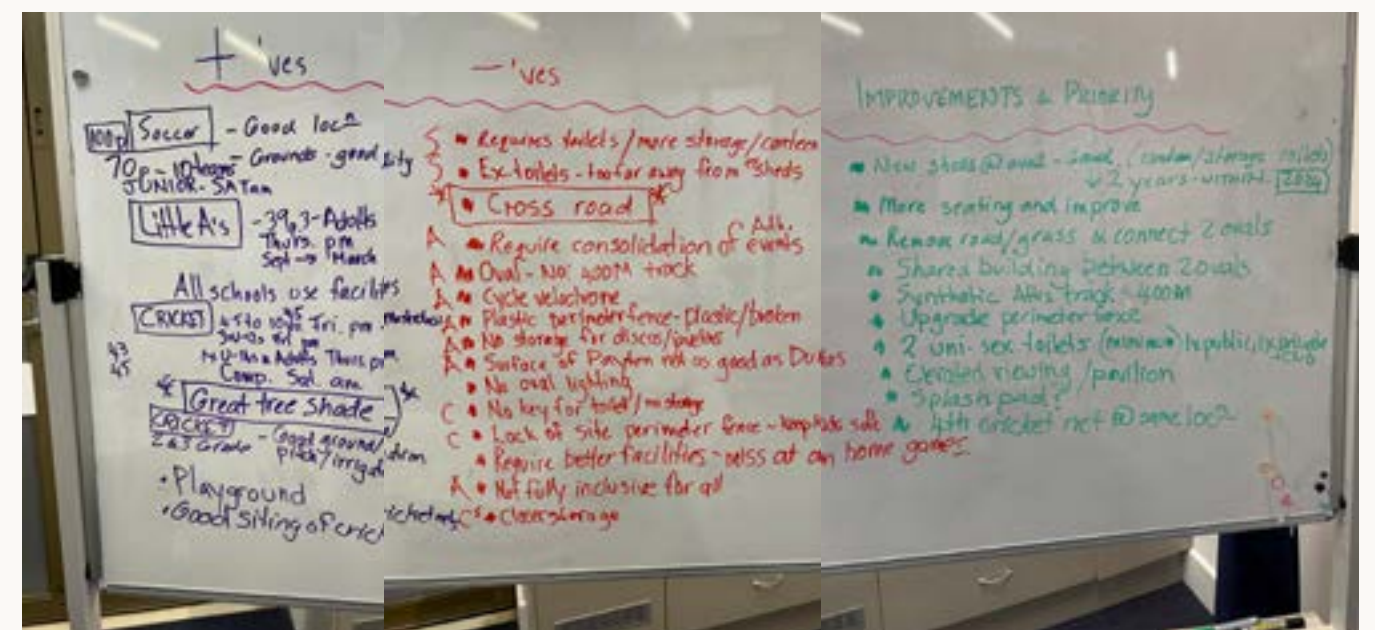 +'ves
100p Soccer - Good locn
70p - 10 teams - Grounds - good
JUNIOR - SAT am
Little A's - 39, 3 - Adults
Thurs. pm
Sept → March
All schools use facilities
CRICKET Fri. pm
& Adults Thurs. pm
Comp. Sat. am
43
45
* Great tree shade *
CRICKET
2 & 3 Grade - Good ground/
pitch/irrigation
• Playground
• Good siting of cricket
-'ves
S • Requires toilets/more storage/canteen
S • Ex. toilets - too far away from sheds
* • Cross road *
A • Require consolidation of Ath. events
A • Oval - No 400M track
A • Cycle velodrome
A • Plastic perimeter fence - plastic/broken
A • No storage for discus/javelins
A • Surface of not as good as
• No oval lighting
C • No key for toilet/no storage
C • Lack of site perimeter fence - keep kids safe
• Require better facilities - miss out on home games
A • Not fully inclusive for all
C • Closer storage
IMPROVEMENTS & PRIORITY
• New (canteen/storage toilets)
↓ 2 years - within 2024
• More seating and improve
• Remove road/grass & connect 2 ovals
• Shared building between 2 ovals
• Synthetic track - 400M
• Upgrade perimeter fence
• 2 uni-sex toilets (minimum) 1x public, 1x private
• Elevated viewing/pavilion
• Splash pad?
• 4th cricket net @ same locn